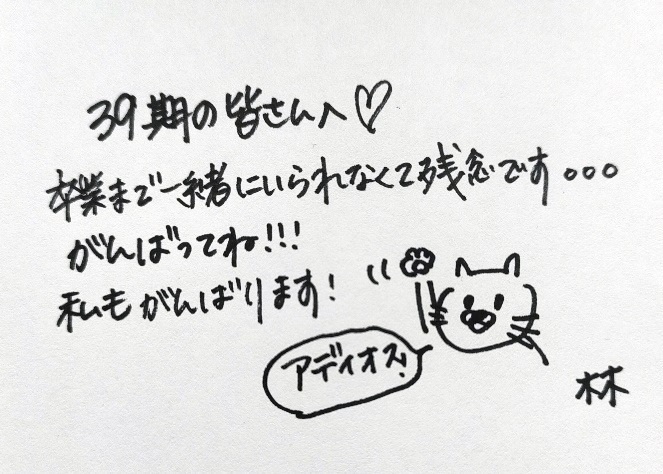 39期の皆さんへ♡
卒業まで一緒にいられなくて残念です...
がんばってね!!!
私もがんばります!
アディオス!
林